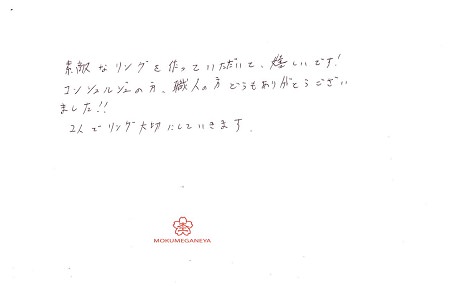 素敵なリングを作っていただいて、嬉しいです!
コンシェルジュの方、職人の方どうもありがとうござい
ました!!
2人でリング大切にしていきます.
MOKUMEGANEYA